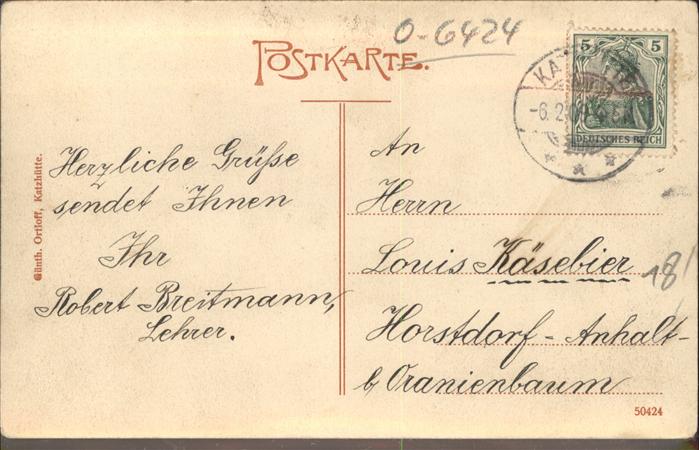 POSTKARTE.
0-6424
5 5
DEUTSCHES REICH
Günth. Ortloff, Katzhütte.
Herzliche Grüße
sendet Ihnen
Ihr
Robert Breitmann,
Lehrer.
An
Herrn
Louis Käsebier
Horstdorf - Anhalt-
b/Oranienbaum
18/
50424